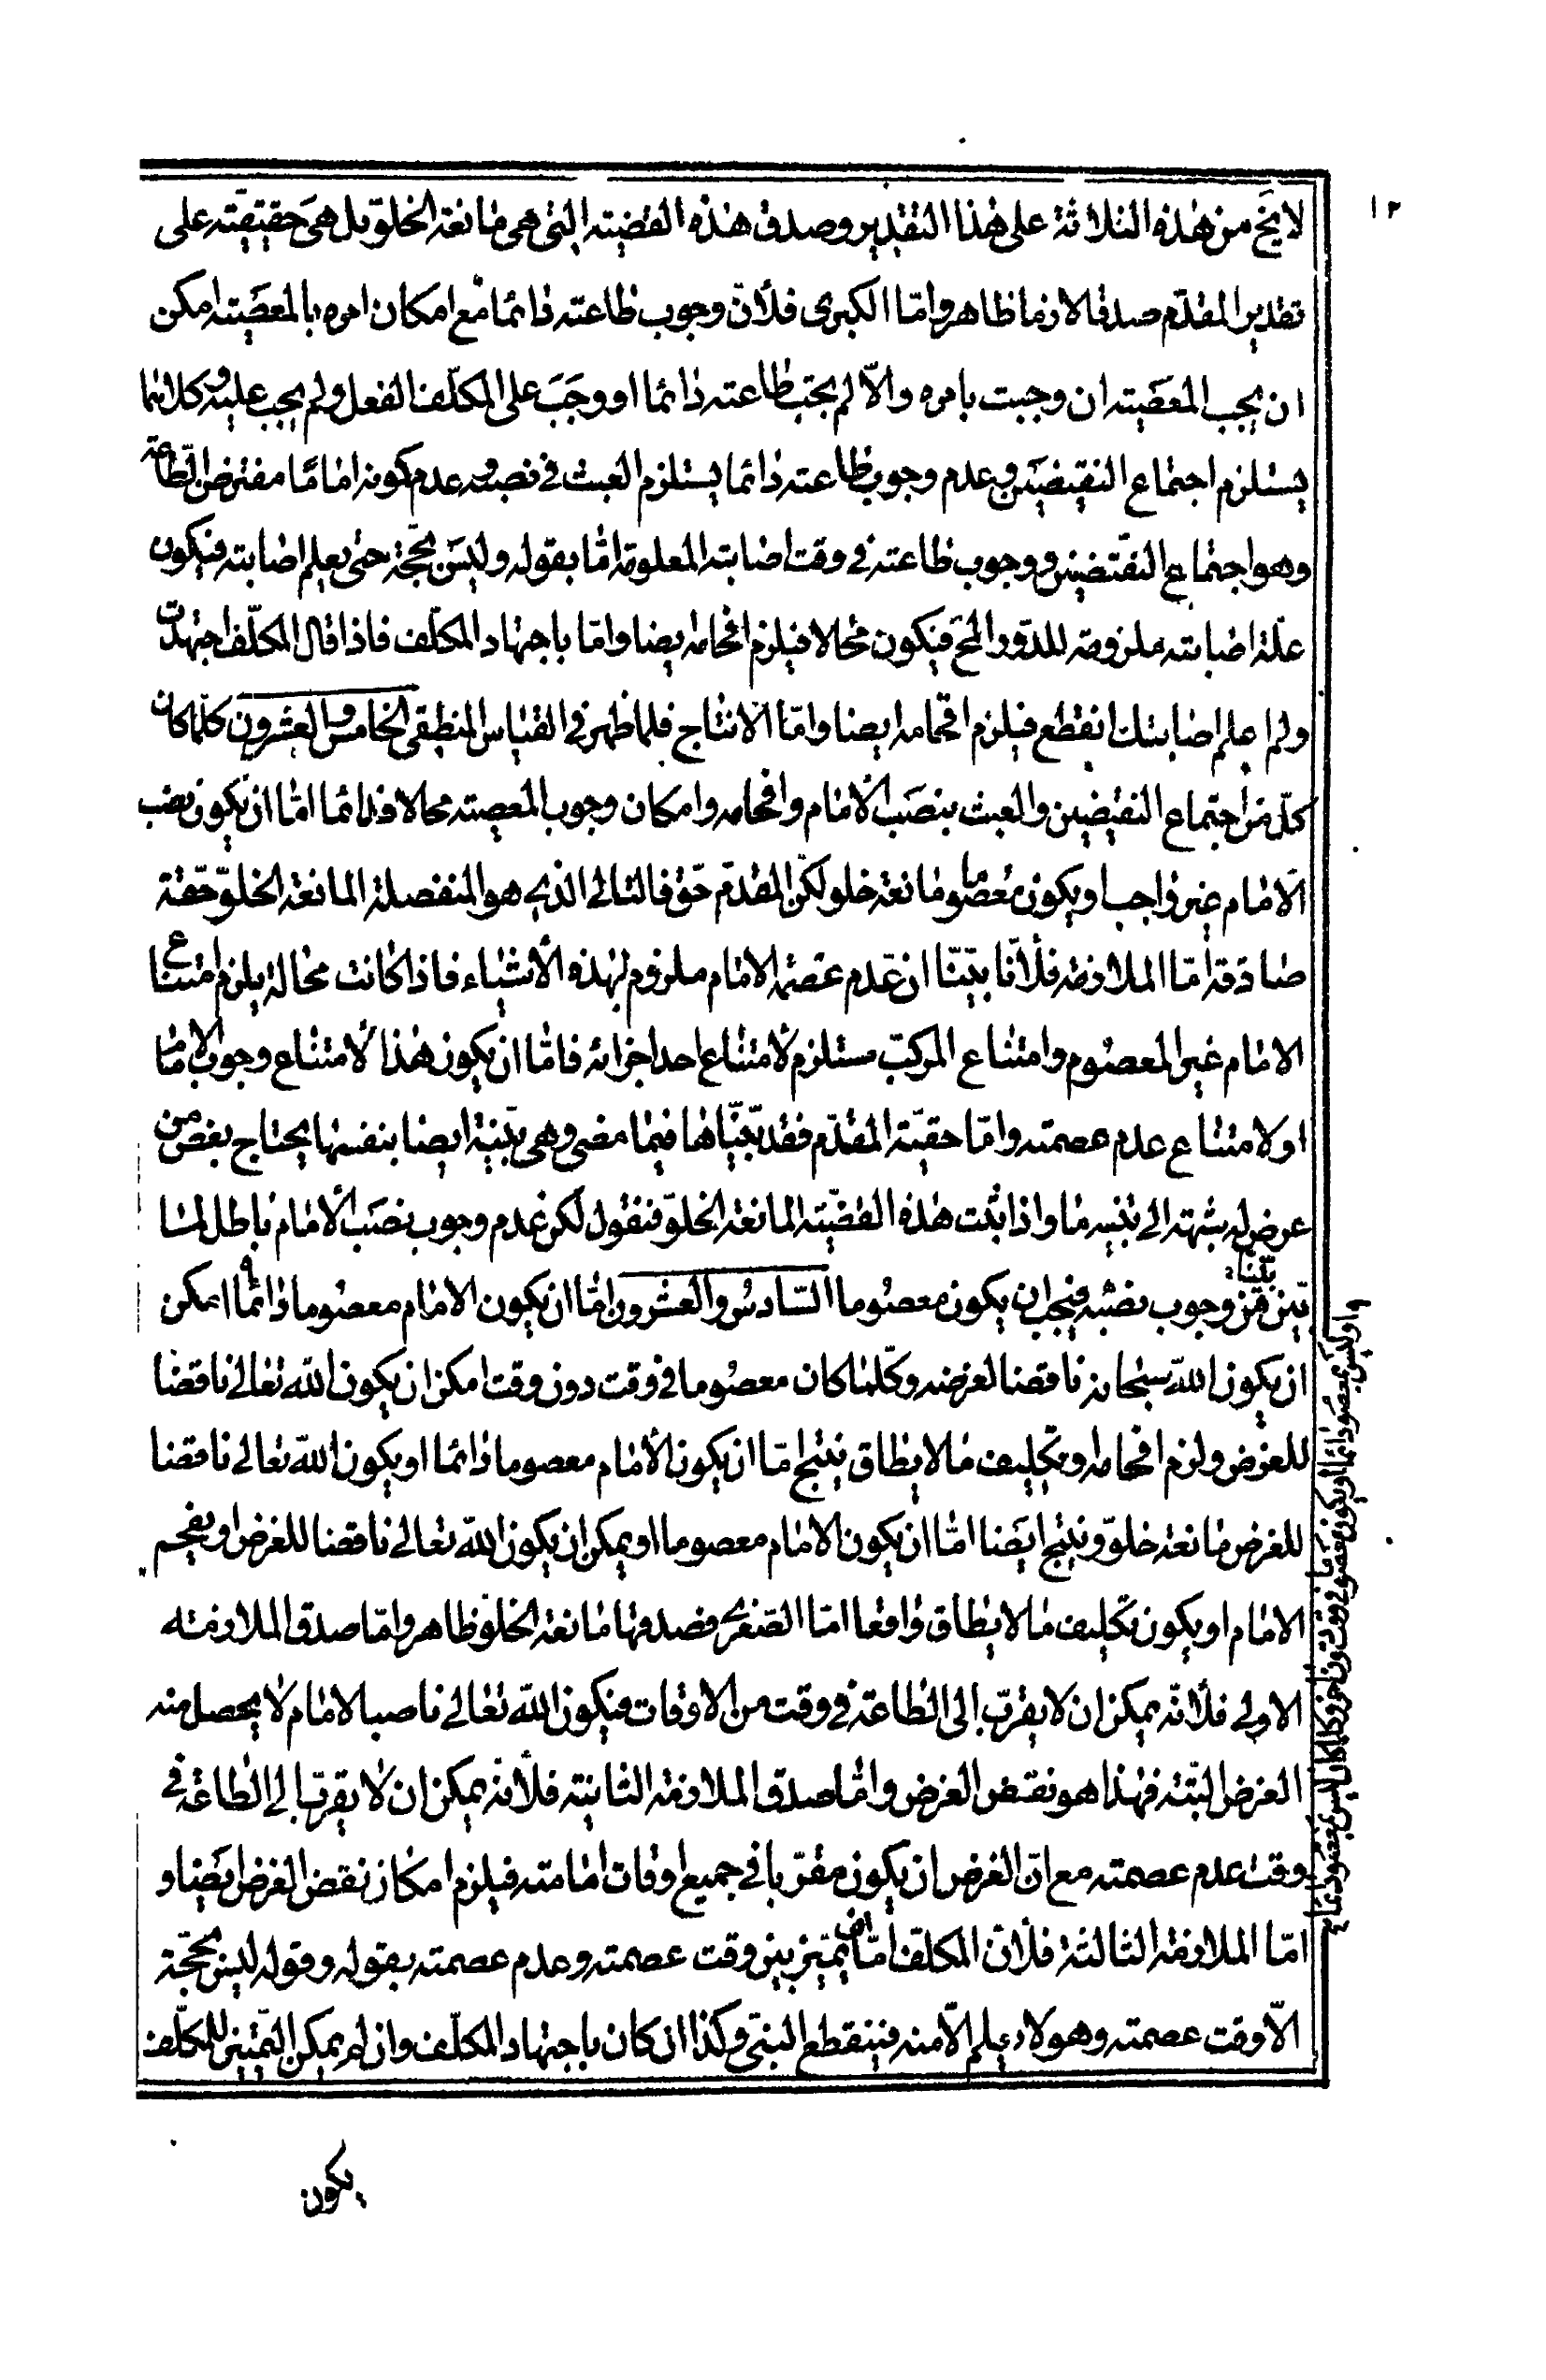 ١٢
لا يخ من هذه الثلاثة على هذا التقدير وصدق هذه القضية التى هى مانعة الخلو بل هى حقيقية على
تقدير المقدّم صدقا لازما ظاهر وامّا الكبرى فلأنّ وجوب طاعته دائما مع امكان امره بالمعصية امكن
ان يجب المعصية ان وجبت بامره والّا لم يجب طاعته دائما او وجب على المكلّف الفعل ولم يجب عليه وكلاهما
يستلزم اجتماع النقيضين وعدم وجوب طاعته دائما يستلزم العبث فى نصبه وعدم كونه اماما مفترض الطاعة
وهو اجتماع النقيضين ووجوب طاعته فى وقت اصابته المعلومة امّا بقوله وليس بحجّة حتى يعلم اصابته فيكون
علّة اصابته ملزومة للدّور المح فيكون محالا فيلزم افحامه ايضا وامّا باجتهاد المكلّف فاذا قال المكلّف اجتهدت
ولم اعلم اصابتك انقطع فيلزم افحامه ايضا وامّا الانتاج فلما ظهر فى القياس المنطقى الخامس والعشرون كلّما كان
كلّ من اجتماع النقيضين والعبث بنصب الامام وافحامه وامكان وجوب المعصية محالا فدائما امّا ان يكون نصب
الامام غير واجب او يكون معصوما مانعة خلو لكن المقدّم حق فالتالى الذى هو المنفصلة المانعة الخلوّ حقّة
صادقة امّا الملازمة فلأنّا بيّنّا ان عدم عصمة الامام ملزوم لهذه الأشياء فاذا كانت محالة يلزم امتناع
الامام غير المعصوم وامتناع المركّب مستلزم لأمتناع احد اجزائه فامّا ان يكون هذا لأمتناع وجوب الامام
او لامتناع عدم عصمته وامّا حقيّة المقدّم فقد بيّنّاها فيما مضى وهى بيّنة ايضا بنفسها يحتاج بعض من
عرض له شبهة الى تنبيه ما واذا ثبت هذه القضيّة المانعة الخلوّ فنقول لكن عدم وجوب نصب الامام باطل لما
بيّنّا
من وجوب نصبه فيجب ان يكون معصوما السّادس والعشرون امّا ان يكون الامام معصوما دائما امكن
ان يكون اللّه سبحانه ناقضا لغرضه وكلّما كان معصوما فى وقت دون وقت امكن ان يكون اللّه تعالى ناقضا
للغرض ولزم افحامه وتكليف ما لا يطاق ينتج امّا ان يكون الأمام معصوما دائما او يكون اللّه تعالى ناقضا
للغرض مانعة خلوّ وينتج ايضا امّا ان يكون الامام معصوما او يمكن ان يكون اللّه تعالى ناقضا للغرض او يفحم
الامام او يكون تكليف ما لا يطاق واقعا امّا الصّغرى فصدقها مانعة الخلوّ ظاهر وامّا صدق الملازمة
الاولى فلأنّه يمكن ان لا يقرّب الى الطاعة فى وقت من الاوقات فيكون اللّه تعالى ناصبا لامام لا يحصل منه
الغرض البتّة فهذا هو نقض الغرض وامّا صدق الملازمة الثانية فلأنّه يمكن ان لا يقرّب الى الطاعة فى
وقت عدم عصمته مع انّ الغرض ان يكون مقرّبا فى جميع اوقات امامته فيلزم امكان نقض الغرض ايضا و
امّا الملازمة الثالثة فلأنّ المكلّف امّا ان يميّز بين وقت عصمته وعدم عصمته بقوله وقوله ليس بحجّة
الّا وقت عصمته وهو لا يعلم الّا منه فينقطع النبى وكذا ان كان باجتهاد المكلّف وان لم يمكن التميز للمكلّف
او ليس بمعصوم دائما او يكون معصوما فى وقت دون اخر وكلما كان ليس بمعصوم دائما
يكون